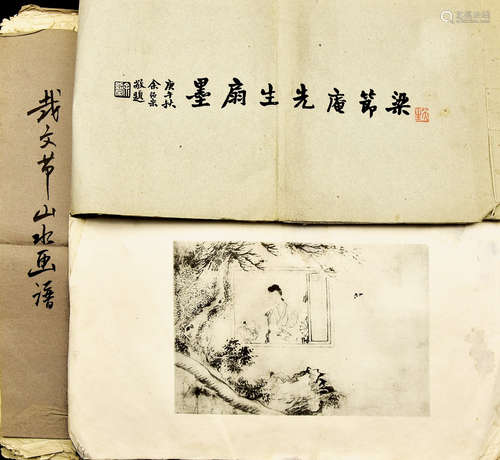 梁節庵先生扇墨
庚午秋
余紹宋
敬題
戴文节山水画谱